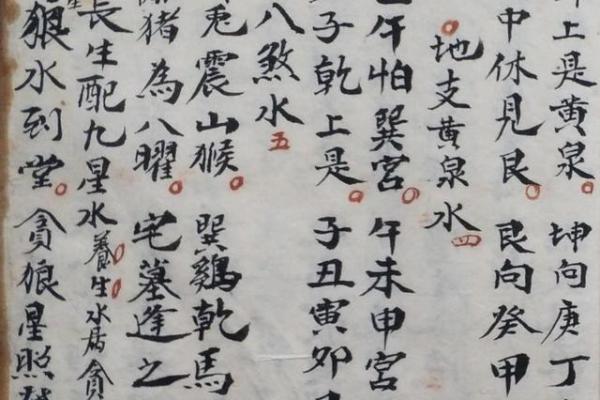 上是黄泉。坤向庚丁
中休見艮。艮向癸甲
地支黄泉水四
午怕巽宮。午未申宮
子乾上是。子丑寅卯
八煞水五
兎震山猴。巽鷄乾馬
猪為八曜。宅墓逢之
長生配九星水養生水居貪
狼水到堂。貪狼星照